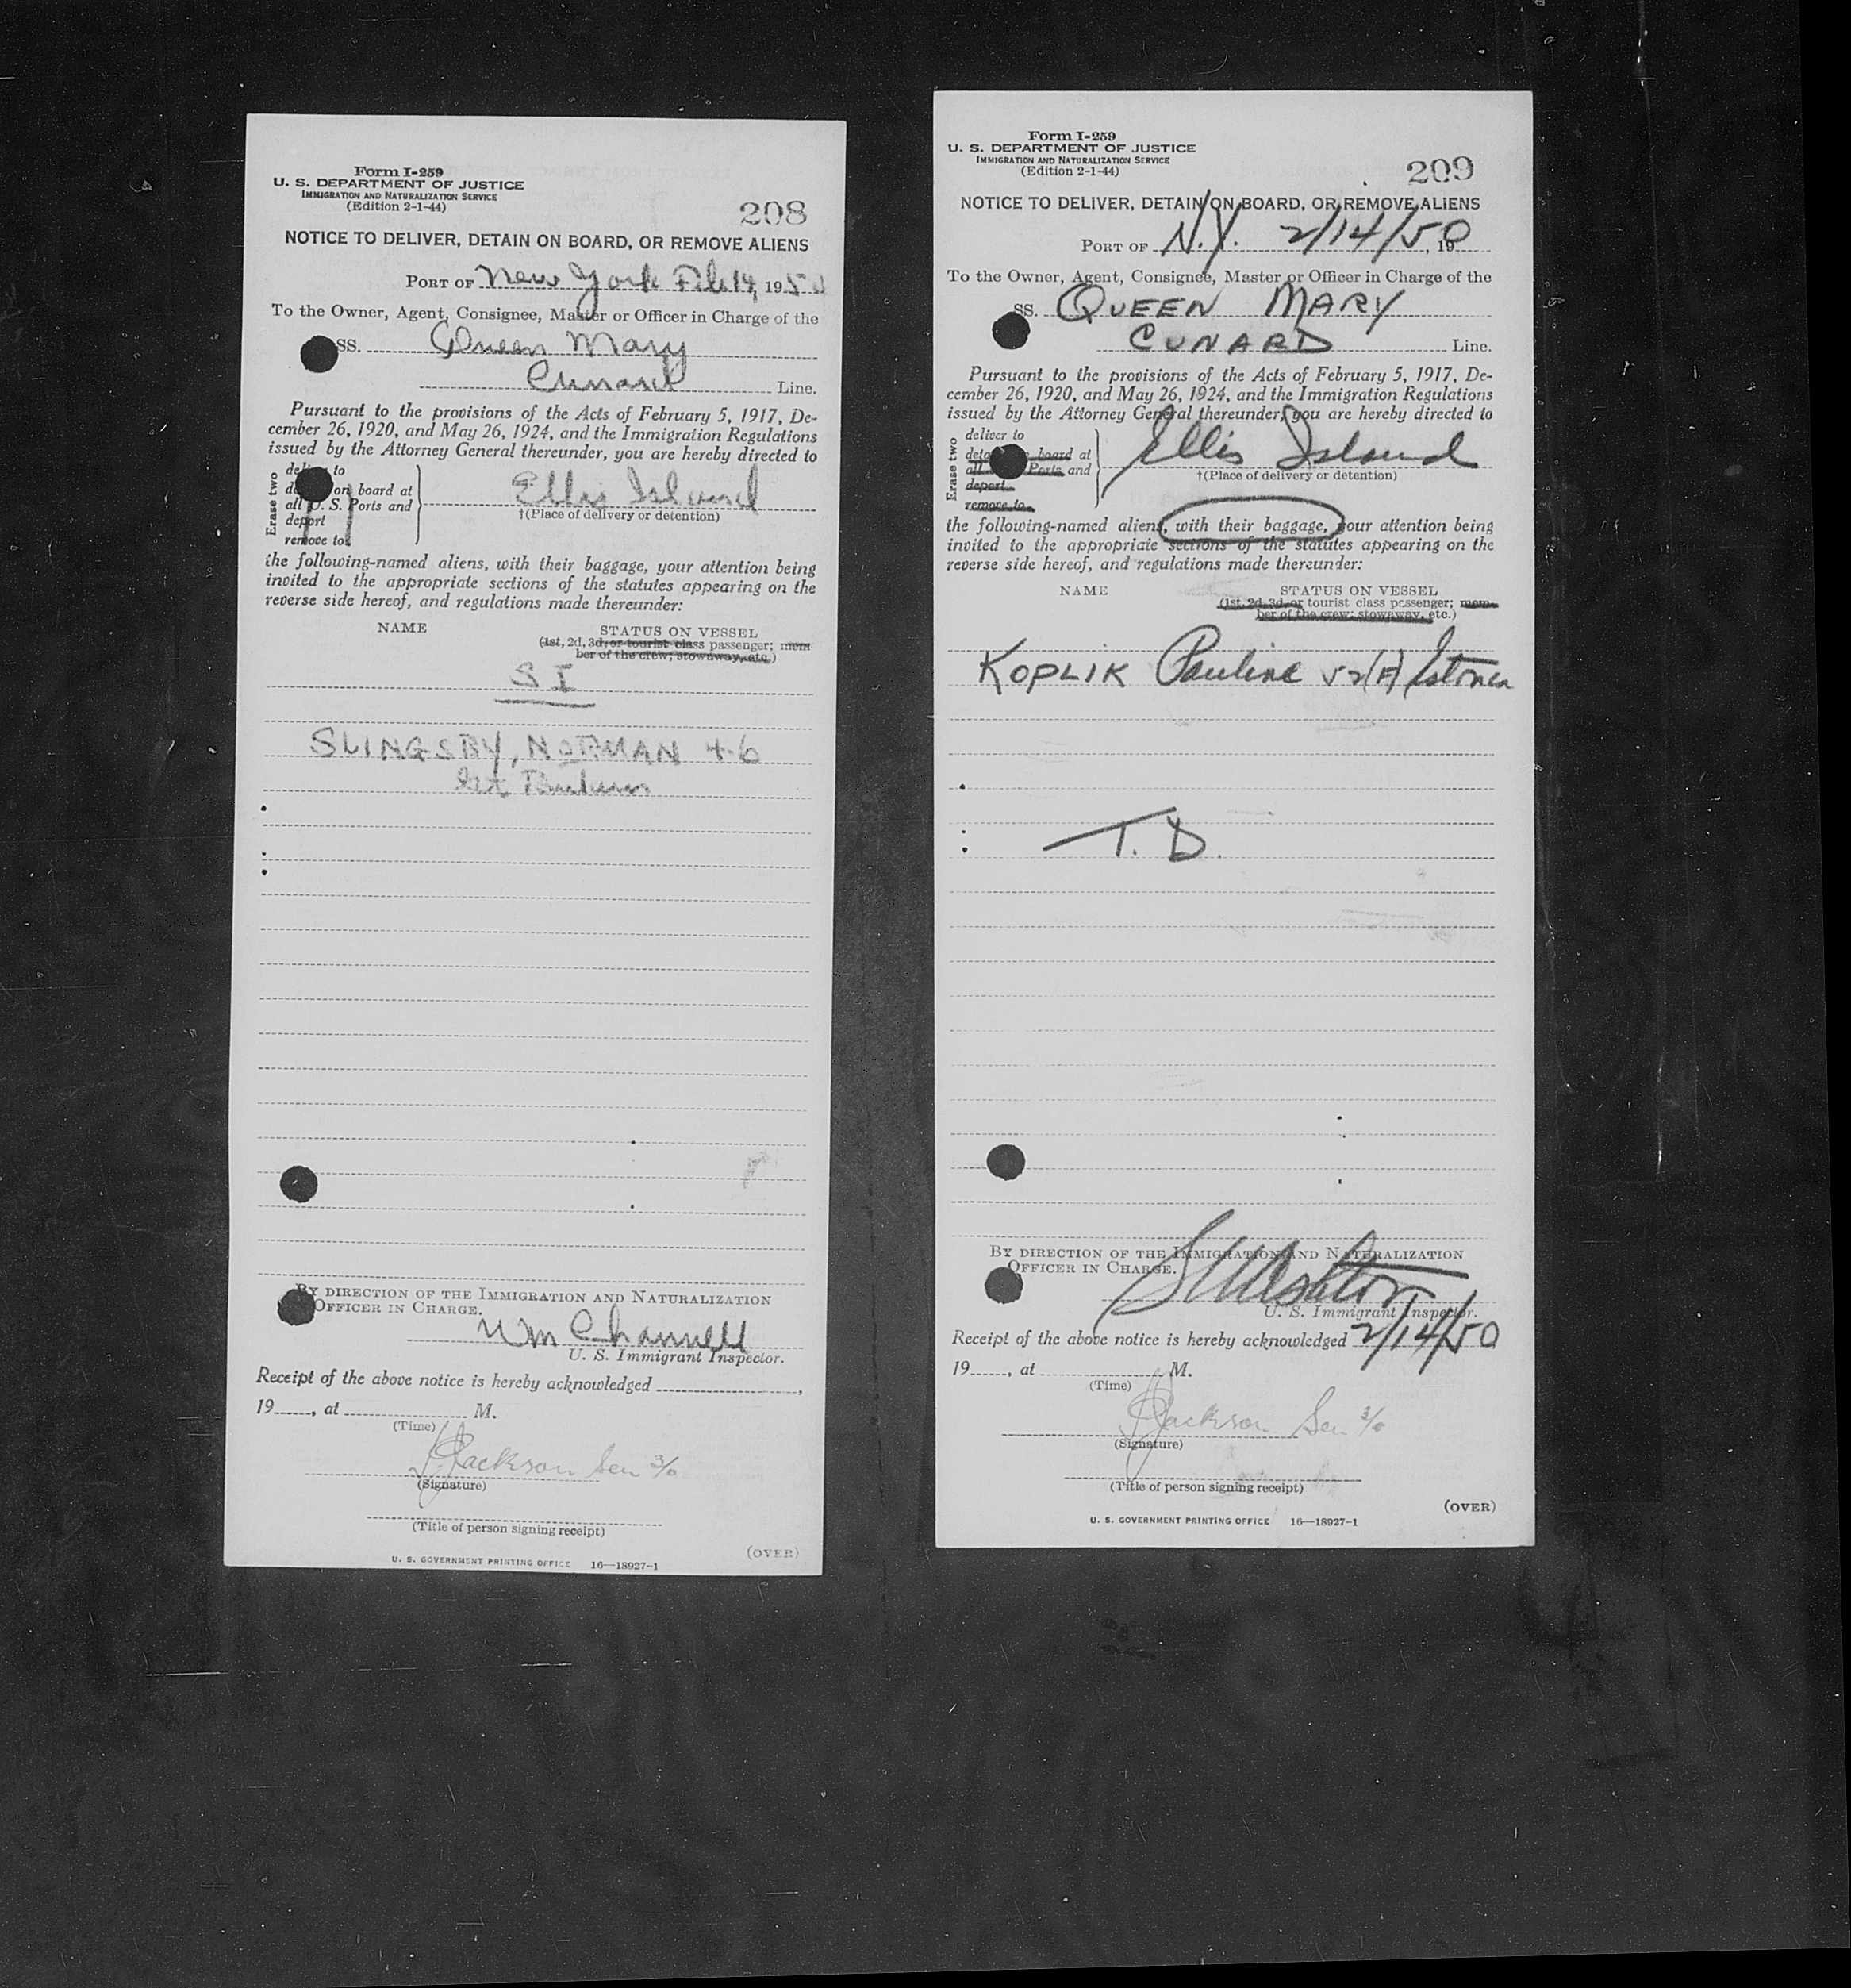 Form I-259
U. S. DEPARTMENT OF JUSTICE
IMMIGRATION AND NATURALIZATION SERVICE
(Edition 2-1-44)
208
NOTICE TO DELIVER, DETAIN ON BOARD, OR REMOVE ALIENS
PORT OF New York Feb 14, 1950
To the Owner, Agent, Consignee, Master or Officer in Charge of the
SS. Queen Mary
Cunard Line.
Pursuant to the provisions of the Acts of February 5, 1917, De-
cember 26, 1920, and May 26, 1924, and the Immigration Regulations
issued by the Attorney General thereunder, you are hereby directed to
Erase two
deliver to
on board at
all U. S. Ports and
deport
remove to
Ellis Island
†(Place of delivery or detention)
the following-named aliens, with their baggage, your attention being
invited to the appropriate sections of the statutes appearing on the
reverse side hereof, and regulations made thereunder:
NAME STATUS ON VESSEL
(1st, 2d, 3d, or tourist class passenger; mem-
ber of the crew; stowaway, etc.)
S I
SLINGSBY, NORMAN 46
BY DIRECTION OF THE IMMIGRATION AND NATURALIZATION
OFFICER IN CHARGE.
Wm Channell
U. S. Immigrant Inspector.
Receipt of the above notice is hereby acknowledged
19, at M.
(Time)
Jackson Sen 3/0
(Signature)
(Title of person signing receipt)
(OVER)
U. S. GOVERNMENT PRINTING OFFICE 16—18927-1
Form I-259
U. S. DEPARTMENT OF JUSTICE
IMMIGRATION AND NATURALIZATION SERVICE
(Edition 2-1-44)
209
NOTICE TO DELIVER, DETAIN ON BOARD, OR REMOVE ALIENS
PORT OF N.Y. 2/14/50, 19
To the Owner, Agent, Consignee, Master or Officer in Charge of the
SS. QUEEN MARY
CUNARD Line.
Pursuant to the provisions of the Acts of February 5, 1917, De-
cember 26, 1920, and May 26, 1924, and the Immigration Regulations
issued by the Attorney General thereunder, you are hereby directed to
Erase two
deliver to
board at
all Ports and
deport
remove to
Ellis Island
†(Place of delivery or detention)
the following-named aliens, with their baggage, your attention being
invited to the appropriate sections of the statutes appearing on the
reverse side hereof, and regulations made thereunder:
NAME STATUS ON VESSEL
(1st, 2d, 3d, or tourist class passenger; mem-
ber of the crew; stowaway, etc.)
KOPLIK Pauline 52(F) Estonia
T. D.
BY DIRECTION OF THE IMMIGRATION AND NATURALIZATION
OFFICER IN CHARGE.
U. S. Immigrant Inspector.
Receipt of the above notice is hereby acknowledged 2/14/50
19, at M.
(Time)
Jackson Sen 3/0
(Signature)
(Title of person signing receipt)
(OVER)
U. S. GOVERNMENT PRINTING OFFICE 16—18927-1